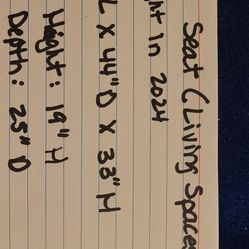 Seat (Living Spaces
ht in 2024
L X 44" D X 33" H
Height: 19" H
Depth: 25" D